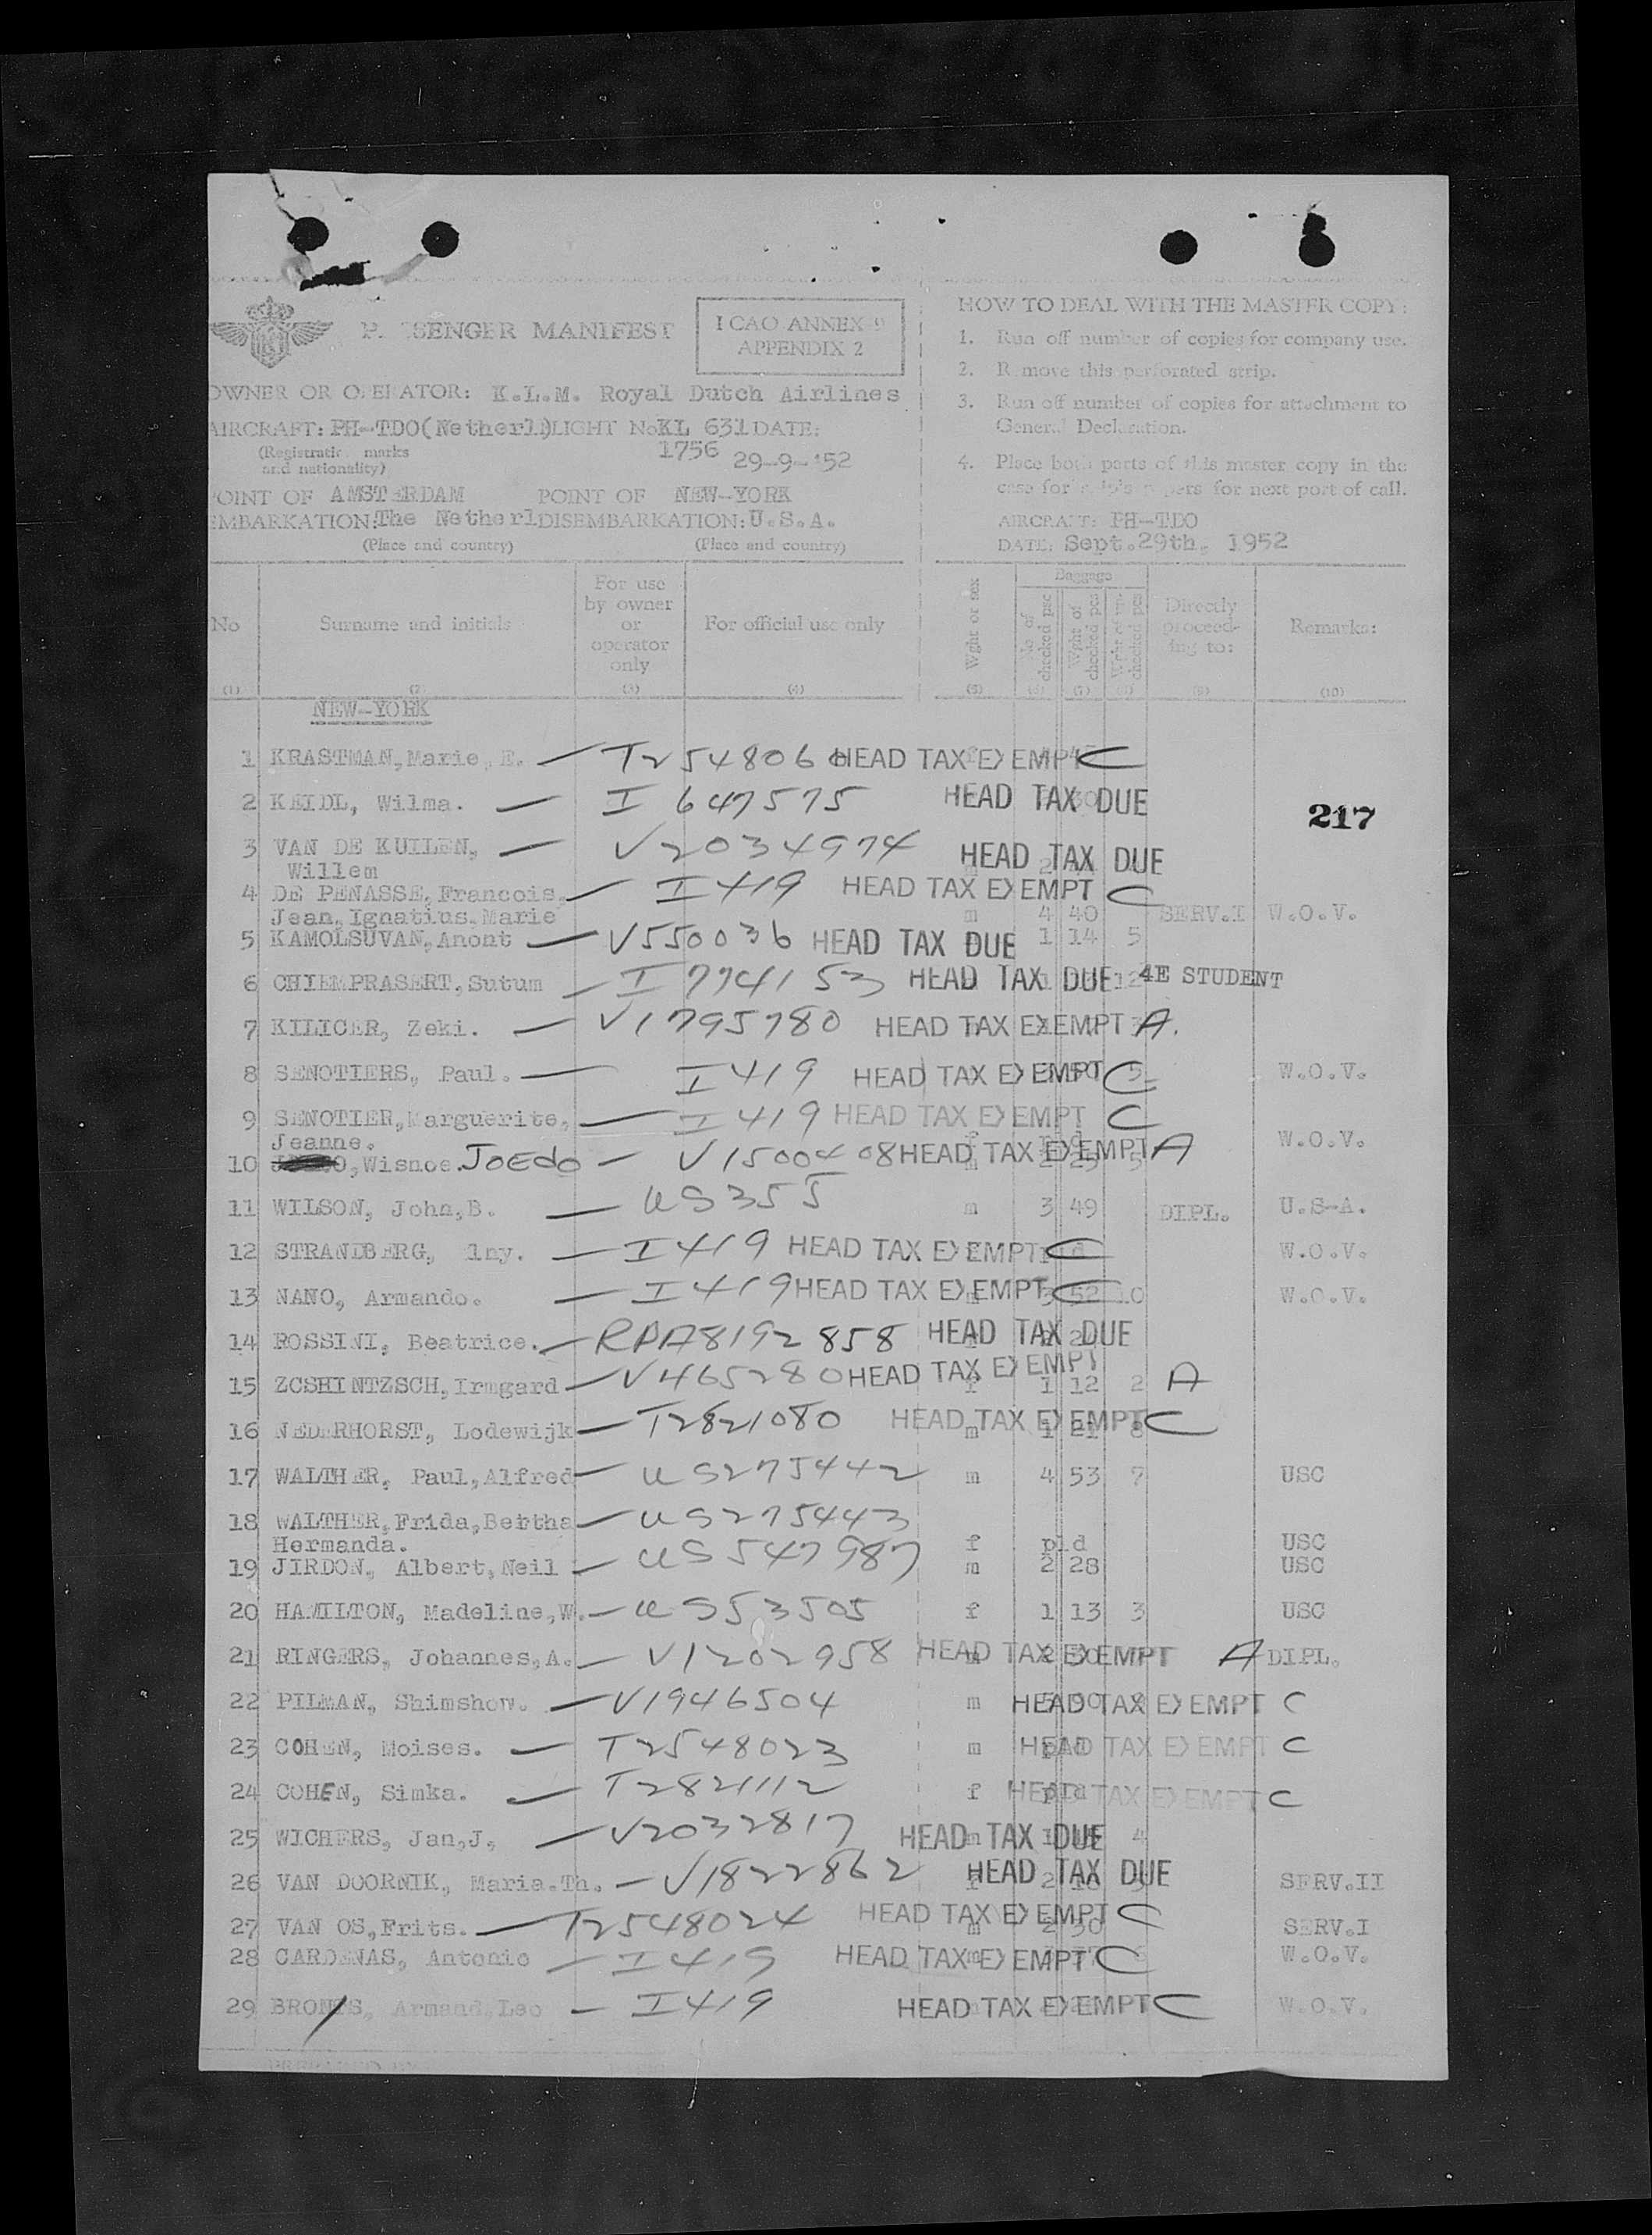 SENGER MANIFEST
I CAO ANNEX 9
APPENDIX 2
OWNER OR OPERATOR: K.L.M. Royal Dutch Airlines
AIRCRAFT: PH-TDO(Netherl) LIGHT No KL 631 DATE:
(Registratio marks
and nationality)
1756 29-9-'52
POINT OF AMSTERDAM POINT OF NEW-YORK
EMBARKATION: The Netherl DISEMBARKATION: U.S.A.
(Place and country) (Place and country)
HOW TO DEAL WITH THE MASTER COPY:
1. Run off number of copies for company use.
2. Remove this perforated strip.
3. Run off number of copies for attachment to
General Declaration.
4. Place both parts of this master copy in the
case for ship's papers for next port of call.
AIRCRAFT: PH-TDO
DATE: Sept.29th, 1952
No
Surname and initials
For use
by owner
or
operator
only
For official use only
Wght or sex
Baggage
No of checked psc
Wght of checked pcs
Directly
proceed-
ing to:
Remarks:
(1) (2) (3) (4) (5) (6) (7) (9) (10)
NEW-YORK
1 KRASTMAN, Marie, E. — T2548060 HEAD TAX EXEMPT C
2 KEIDL, Wilma. — I 647575 HEAD TAX DUE
217
3 VAN DE KUILEN, — V2034974 HEAD TAX DUE
Willem
4 DE PENASSE, Francois, — I 419 HEAD TAX EXEMPT C
Jean, Ignatius, Marie m 4 40 SERV.I W.O.V.
5 KAMOLSUVAN, Anont — V550036 HEAD TAX DUE 1 14 5
6 CHIEMPRASERT, Sutum — I 774153 HEAD TAX DUE 12 4E STUDENT
7 KILICER, Zeki. — V1795780 HEAD TAX EXEMPT A.
8 SENOTIERS, Paul. — I 419 HEAD TAX EXEMPT C 5 W.O.V.
9 SENOTIER, Marguerite, — I 419 HEAD TAX EXEMPT C
Jeanne. W.O.V.
10 O, Wisnoe. JOEdo — V1500408 HEAD TAX EXEMPT A
11 WILSON, John, B. — US355 m 3 49 DIPL. U.S-A.
12 STRANDBERG, lny. — I 419 HEAD TAX EXEMPT C W.O.V.
13 NANO, Armando. — I 419 HEAD TAX EXEMPT C 52 10 W.O.V.
14 ROSSINI, Beatrice. — RPA8192858 HEAD TAX DUE
15 ZCSHINTZSCH, Irmgard — V465280 HEAD TAX EXEMPT f 1 12 2 A
16 NEDERHORST, Lodewijk — T2821080 HEAD TAX EXEMPT C
17 WALTHER, Paul, Alfred — US275442 m 4 53 7 USC
18 WALTHER, Frida, Bertha — US275443
Hermanda. f pld USC
19 JIRDON, Albert, Neil — US547987 m 2 28 USC
20 HAMILTON, Madeline, W. — US53505 f 1 13 3 USC
21 RINGERS, Johannes, A. — V1202958 HEAD TAX EXEMPT A DIPL.
22 PILMAN, Shimshow. — V1946504 m HEAD TAX EXEMPT C
23 COHEN, Moises. — T2548023 m HEAD TAX EXEMPT C
24 COHEN, Simka. — T2821112 f HEAD TAX EXEMPT C
25 WICHERS, Jan, J, — V2032817 HEAD TAX DUE 4
26 VAN DOORNIK, Maria.Th. — V1822862 HEAD TAX DUE SERV.II
27 VAN OS, Frits. — T2548024 HEAD TAX EXEMPT C SERV.I
28 CARDENAS, Antonio — I 419 HEAD TAX EXEMPT C W.O.V.
29 BRONES, Armand, Leo — I 419 HEAD TAX EXEMPT C W.O.V.